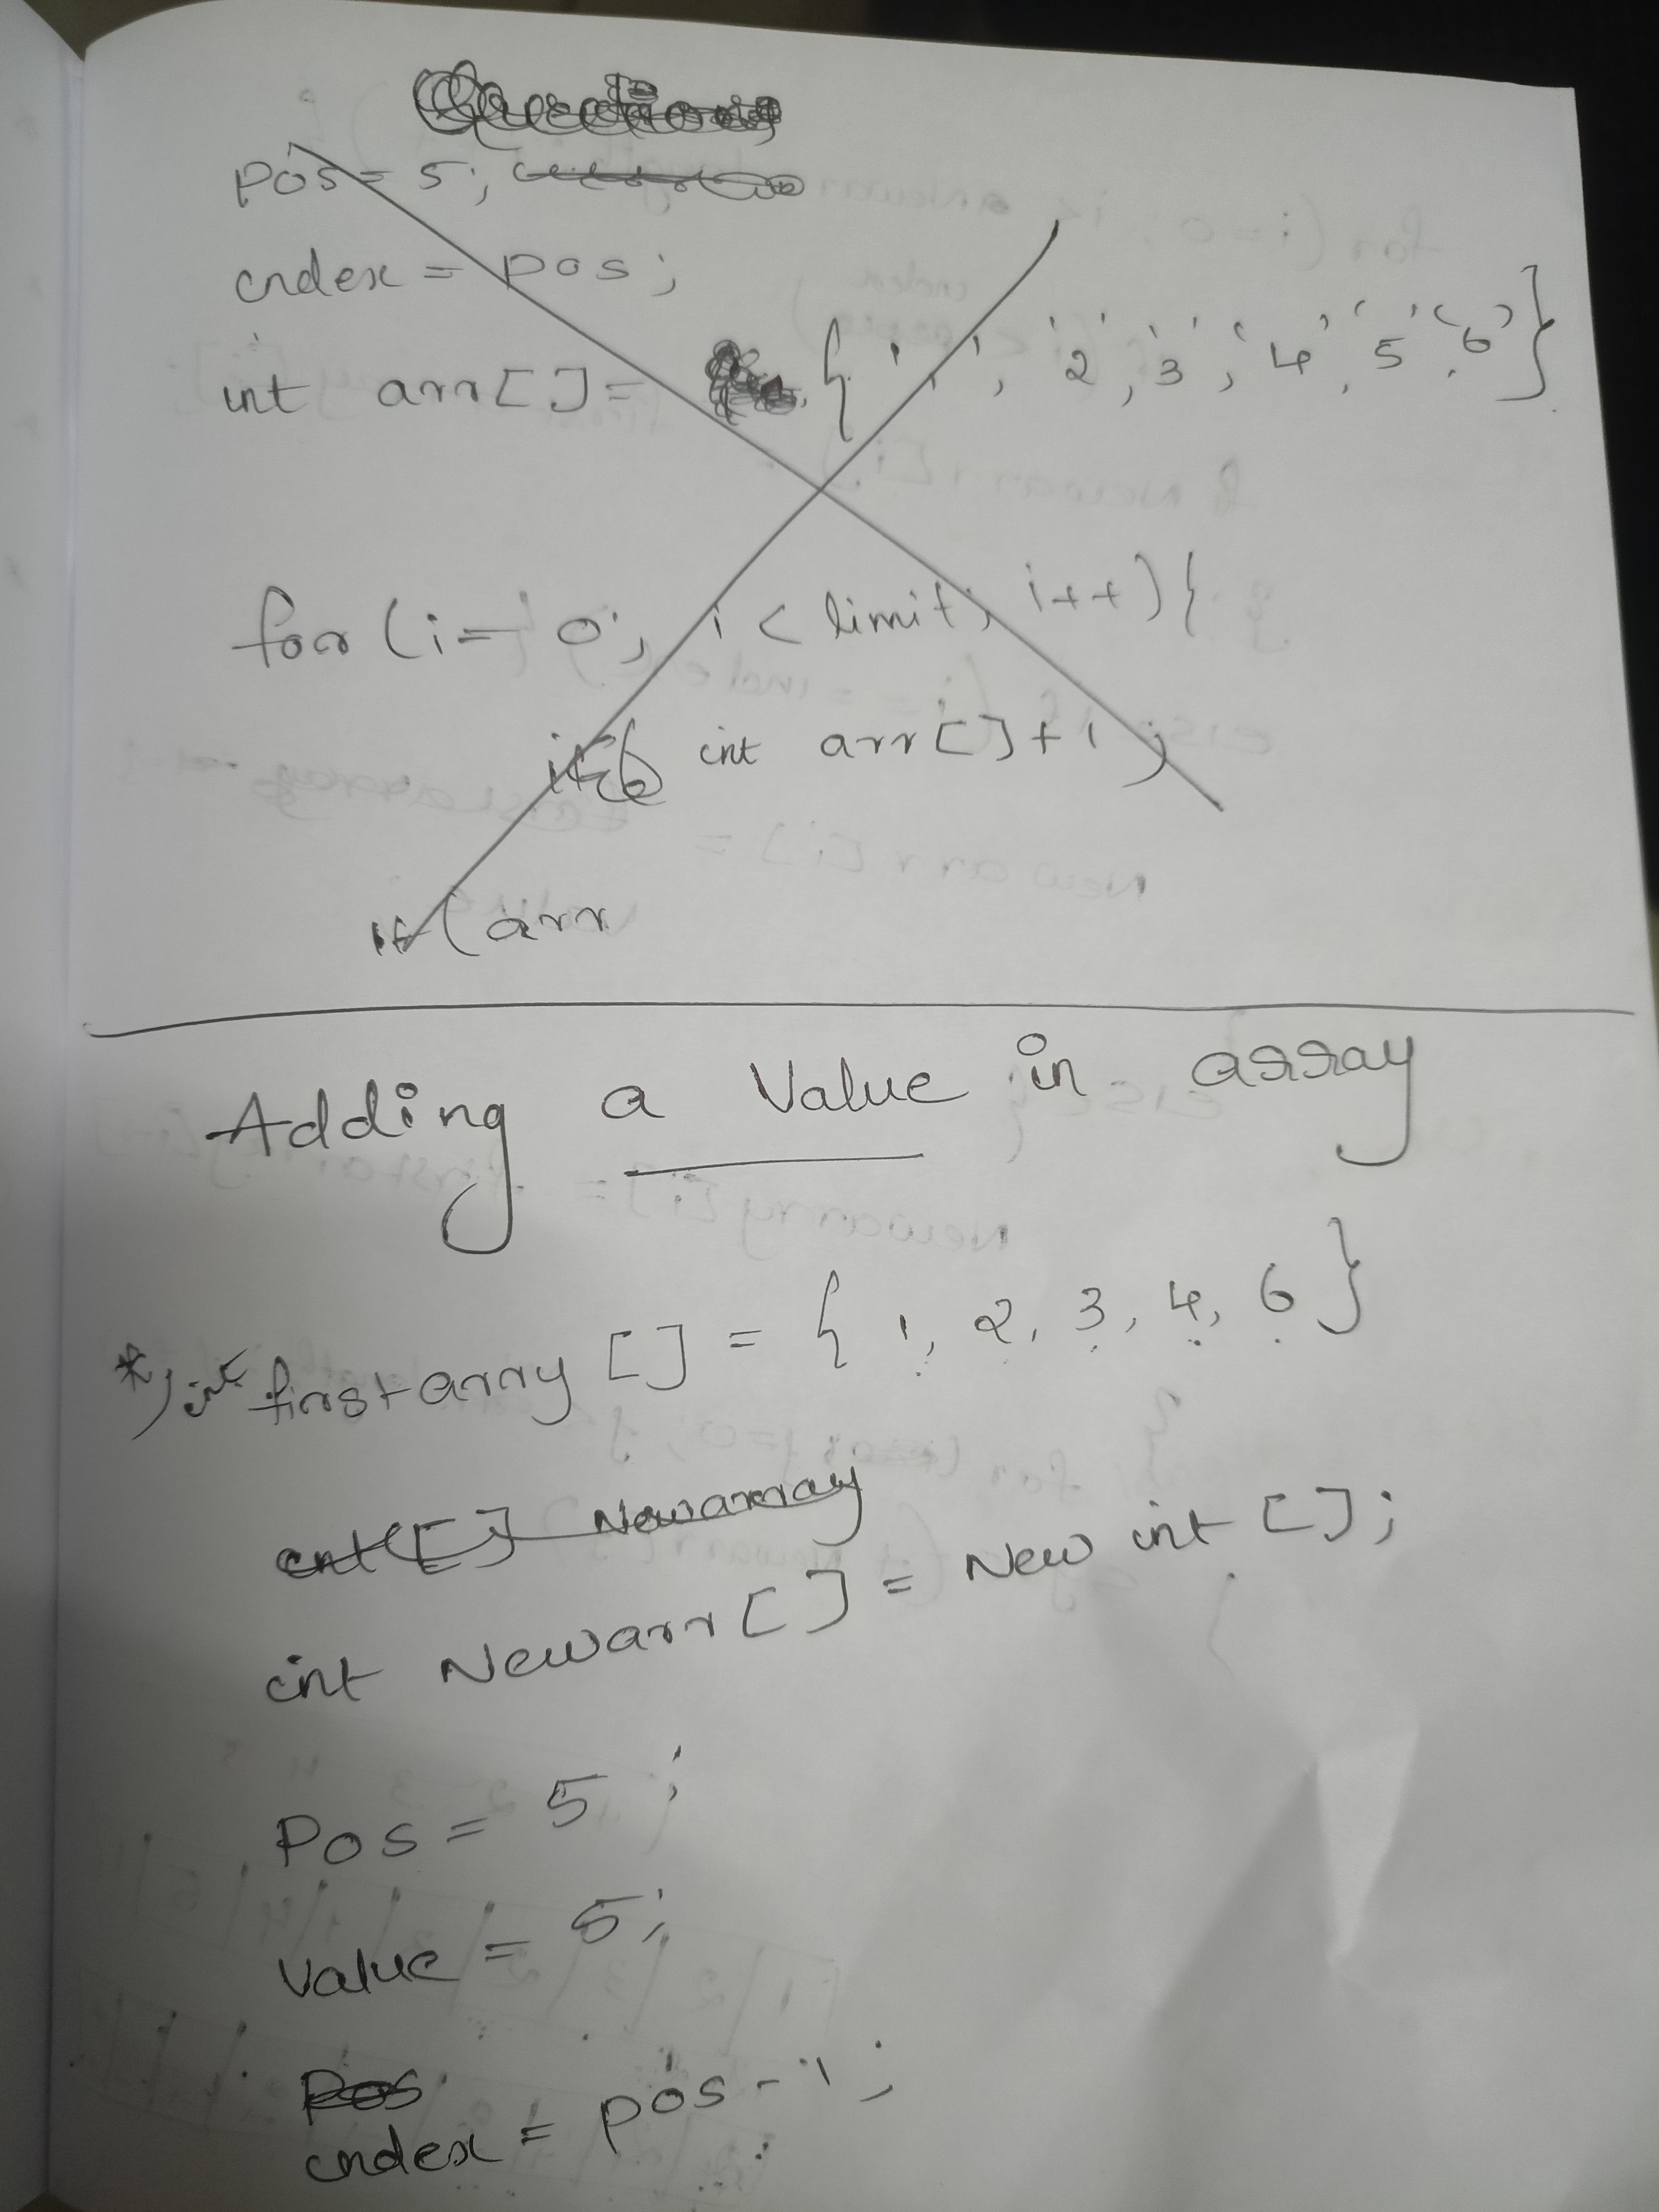 Pos = 5;
index = pos;
int arr[] = { '1', '2', '3', '4', '5', '6' }
for (i = 0; i < limit; i++) {
int arr[] + 1;
if (arr
Adding a Value in array
*) int firstarry [] = { 1, 2, 3, 4, 6 }
int [] Newarray
int Newarr [] = New int [];
Pos = 5;
Value = 5;
Pos
index = pos - 1;